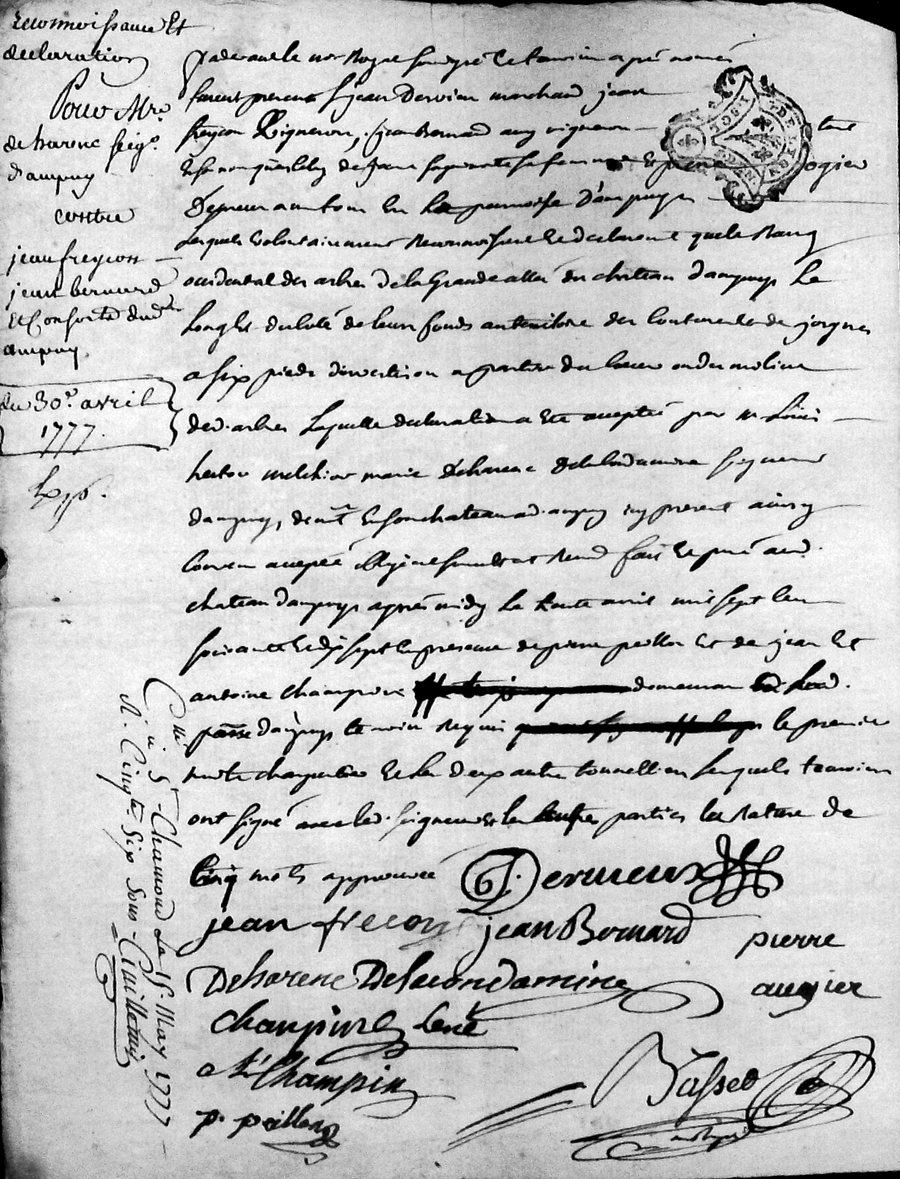 Reconnoissance Et
declaration
Pour Mre
de harenc seigr
dampuy
contre
jean freycon
jean bernard
Et Consorts dud
ampuy
du 30e avril
1777.
Exp.
Pardevant le Nore Royal soussigné Et temoins aprés només
furent presents sr jean Dervieu marchand jean
freycon Vigneron, jean Bernard aussy vigneron
ogier
Demeurants tous En la paroisse d'ampuy
Lesquels volontairement Reconnoissent Et declarent que le Rang
occidental des arbres de la Grande allée du chateau dampuy Le
Long Et du coté de leurs fonds au territoire de
a six pieds a partir du
desd. arbres Laquelle declaration a Eté acceptée par mre Louis
hector melchior marie deharenc delacondamine seigneur
dampuy, demt En son chateau d'ampuy icy present ainsy
Convenu accepté obligé Rend fait Et passé aud.
chateau dampuy aprés midy Le trente avril mil sept Cent
soixante Et dix sept En presence de pierre peillon Et de jean Et
antoine champin demeurant
dampuy temoins Requis le premier
charpentier Et Les deux autres tonnelliers Lesquels temoins
ont signé avec led. seigneur Et Les parties La Rature de
Cinq mots approuvée Dervieux
jean frecon jean Bernard pierre
DeharencDelacondamine augier
champin
at Champin
p. peillon
Basset
Collé à St. Chamond Le 15. May 1777
R. Cinqte Six Sous